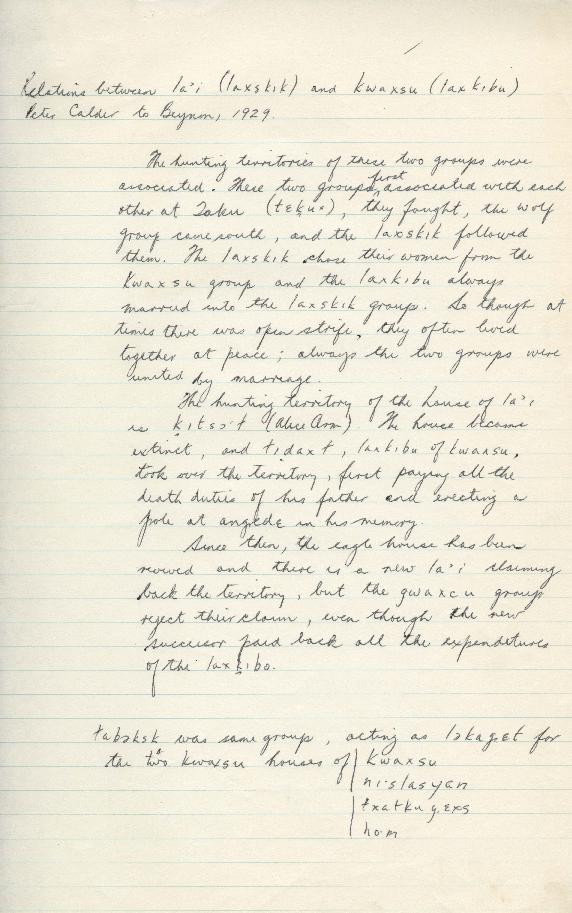 Relations between la'i (laxskik) and kwaxsu (laxkibu)
Peter Calder to Beynon, 1929.
The hunting territories of these two groups were
associated. These two groups, first associated with each
other at Taku (tɛḳux), they fought, the wolf
group came south, and the laxskik followed
them. The laxskik chose their women from the
Kwaxsu group and the laxkibu always
married into the laxskik group. So though at
times there was open strife, they often lived
together at peace; always the two groups were
united by marriage.
The hunting territory of the house of la'i
is (Alice Arm). The house became
extinct, and tidaxt, laxkibu of kwaxsu,
took over the territory, first paying all the
death duties of his father and erecting a
pole at angɛdɛ in his memory.
Since then, the eagle house has been
revived and there is a new la'i claiming
back the territory, but the gwaxcu group
reject their claim, even though the new
successor paid back all the expenditures
of the laxḳibo.
was same group, acting as for
the two Kwaxsu houses of Kwaxsu
ni·slasyan
hom